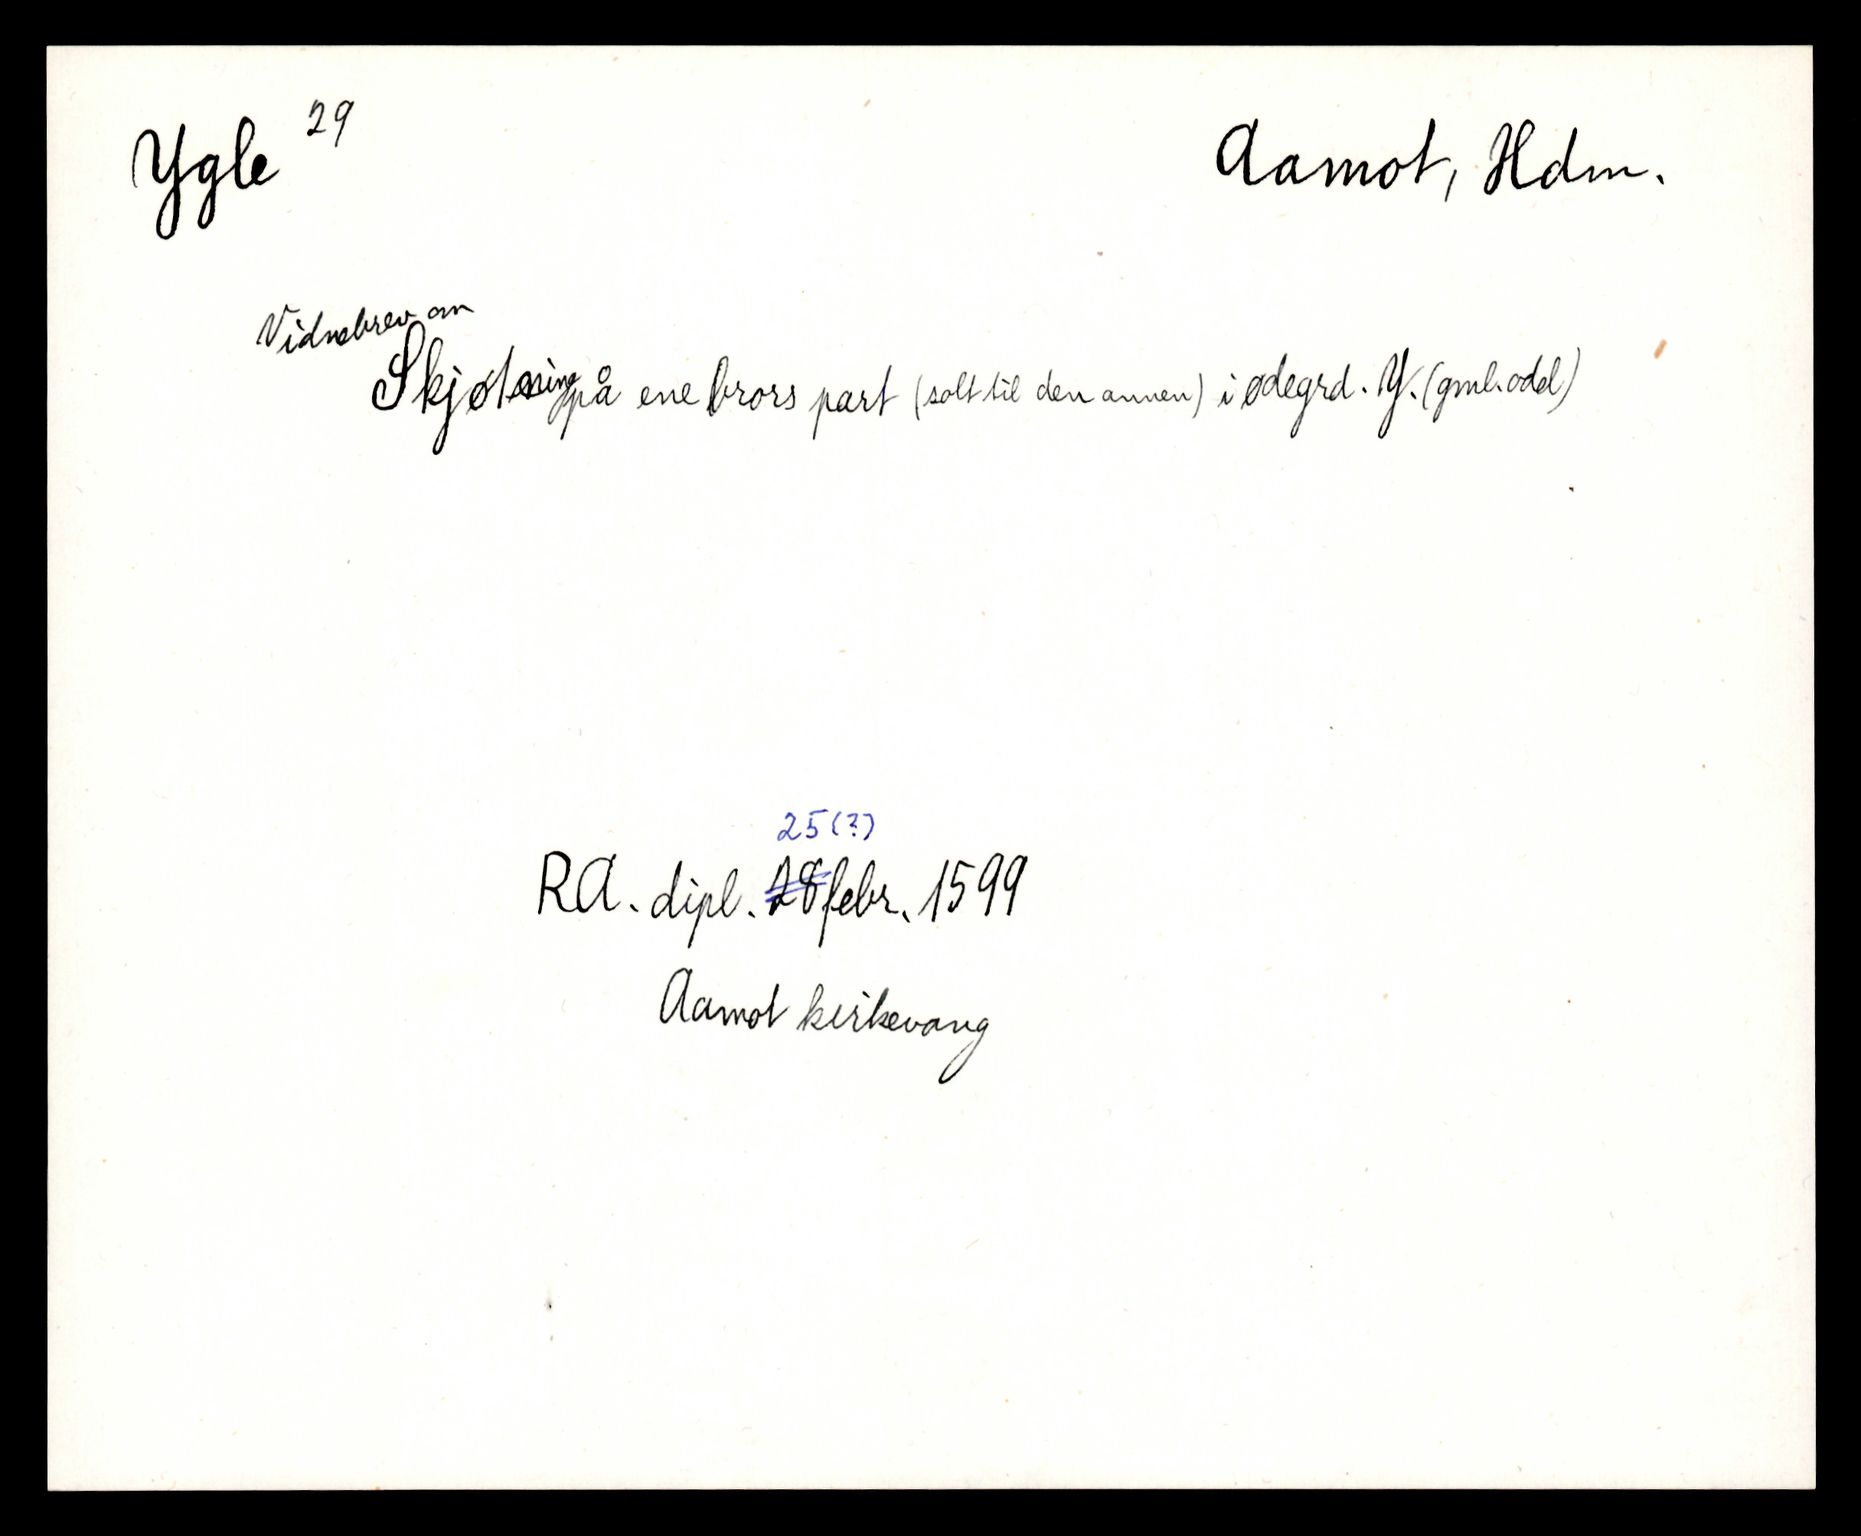 Ygle 29
Aamot, Hdm.
Vidnebrev om
Skjøtning på ene brors part (solt til den annen) i ødegrd. Y. (gml. odel)
25(?)
RA. dipl. 28 febr. 1599
Aamot kirkevang